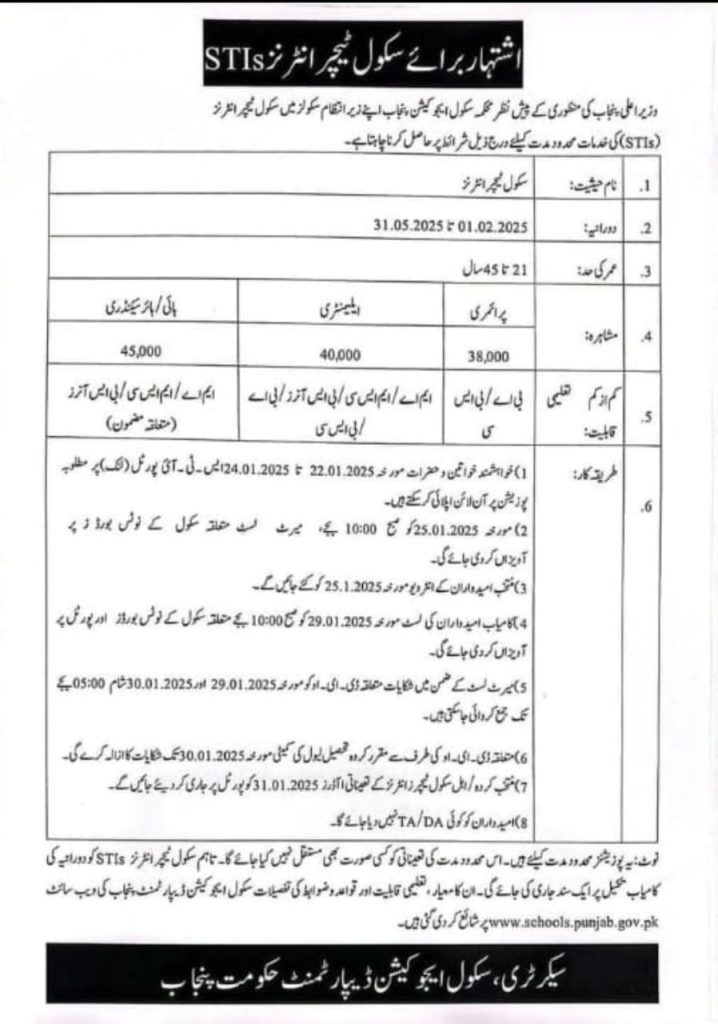 اشتہار برائے سکول ٹیچر انٹرنز STIs
وزیر اعلی پنجاب کی منظوری کے پیش نظر محکمہ سکول ایجوکیشن پنجاب اپنے زیر انتظام سکولز میں سکول ٹیچر انٹرنز
(STIs) کی خدمات محدود مدت کیلئے درج ذیل شرائط پر حاصل کرنا چاہتا ہے۔
1. نام حیثیت: سکول ٹیچر انٹرنز
2. دورانیہ: 01.02.2025 تا 31.05.2025
3. عمر کی حد: 21 تا 45 سال
4. مشاہرہ: پرائمری ایلیمنٹری ہائی/ہائر سیکنڈری
38,000 40,000 45,000
5. کم از کم تعلیمی قابلیت: بی اے/بی ایس سی ایم اے/ایم ایس سی/بی ایس آنرز/بی اے /بی ایس سی ایم اے/ایم ایس سی/بی ایس آنرز (متعلقہ مضمون)
6. طریقہ کار:
1) خواہشمند خواتین و حضرات مورخہ 22.01.2025 تا 24.01.2025 ایس۔ٹی۔آئی پورٹل (لنک) پر مطلوبہ
پوزیشن پر آن لائن اپلائی کر سکتے ہیں۔
2) مورخہ 25.01.2025 کو صبح 10:00 بجے، میرٹ لسٹ متعلقہ سکول کے نوٹس بورڈز پر
آویزاں کر دی جائے گی۔
3) منتخب امیدواران کے انٹرویو مورخہ 25.1.2025 کو کئے جائیں گے۔
4) کامیاب امیدواران کی لسٹ مورخہ 29.01.2025 کو صبح 10:00 بجے متعلقہ سکول کے نوٹس بورڈز اور پورٹل پر
آویزاں کر دی جائے گی۔
5) میرٹ لسٹ کے ضمن میں شکایات متعلقہ ڈی۔ای۔او کو مورخہ 29.01.2025 اور 30.01.2025 شام 05:00 بجے
تک جمع کروائی جا سکتی ہیں۔
6) متعلقہ ڈی۔ای۔او کی طرف سے مقرر کردہ تحصیل لیول کی کمیٹی مورخہ 30.01.2025 تک شکایات کا ازالہ کرے گی۔
7) منتخب کردہ/اہل سکول ٹیچرز انٹرنز کے تعیناتی آرڈرز 31.01.2025 کو پورٹل پر جاری کر دیئے جائیں گے۔
8) امیدواران کو کوئی TA/DA نہیں دیا جائے گا۔
نوٹ: یہ پوزیشنز محدود مدت کیلئے ہیں۔ اس محدود مدت کی تعیناتی کو کسی صورت بھی مستقل نہیں کیا جائے گا۔ تاہم سکول ٹیچر انٹرنز STIs کو دورانیہ کی
کامیاب تکمیل پر ایک سند جاری کی جائے گی۔ ان کا معیار، تعلیمی قابلیت اور قواعد و ضوابط کی تفصیلات سکول ایجوکیشن ڈیپارٹمنٹ پنجاب کی ویب سائٹ
www.schools.punjab.gov.pk پر شائع کر دی گئی ہیں۔
سیکرٹری، سکول ایجوکیشن ڈیپارٹمنٹ حکومت پنجاب